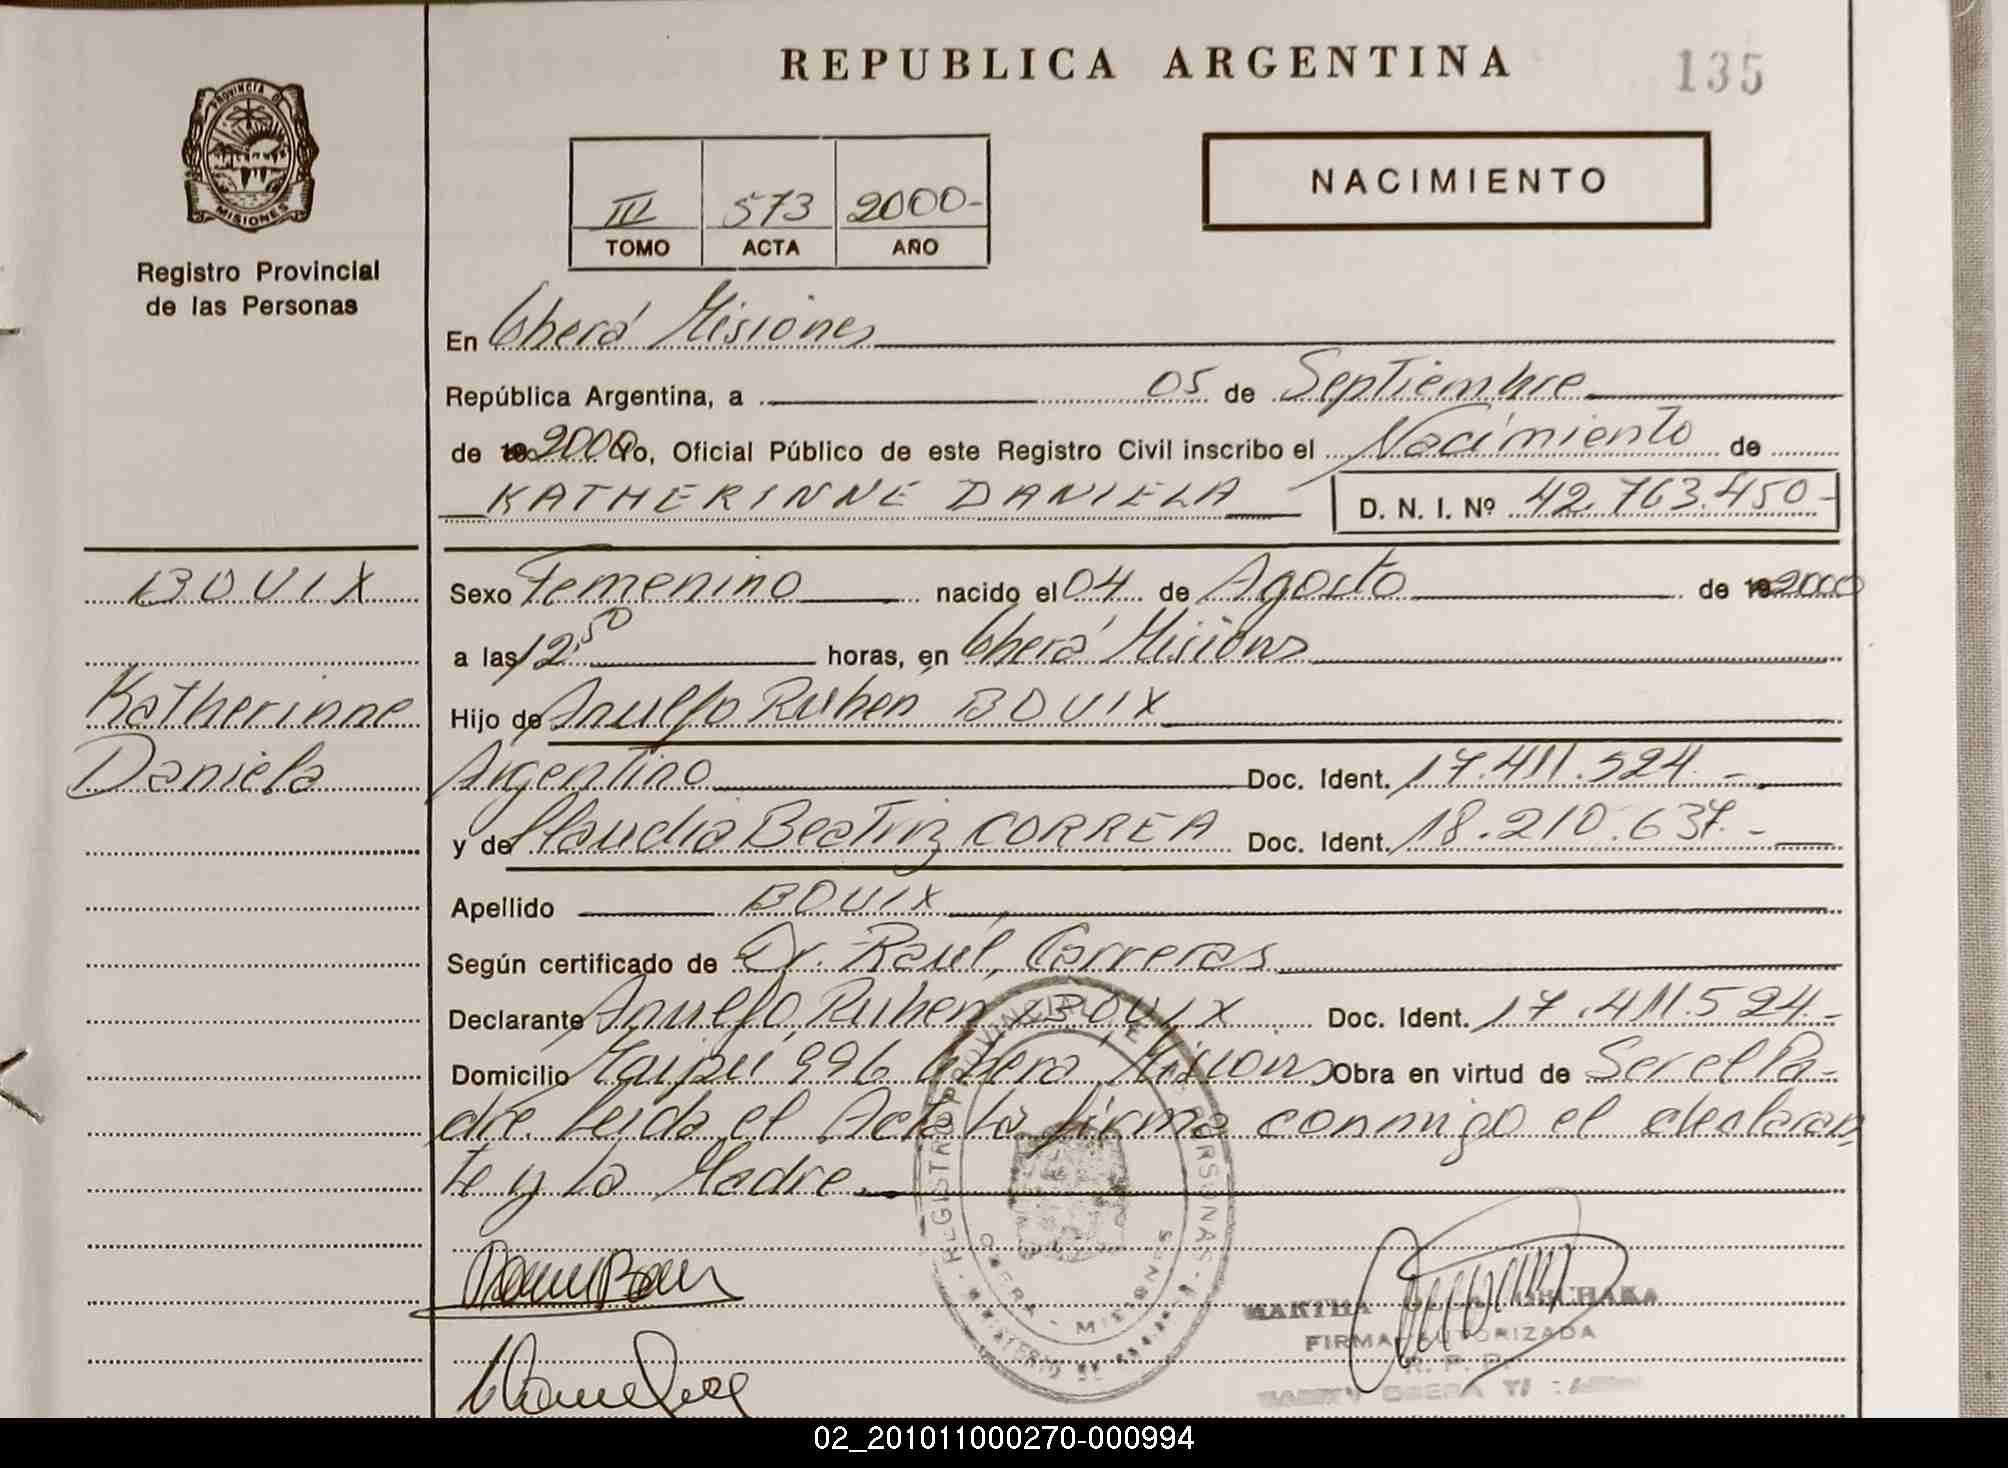 REPUBLICA ARGENTINA
135
PROVINCIA D
MISIONES
Registro Provincial
de las Personas
III 573 2000-
TOMO ACTA AÑO
NACIMIENTO
En Oberá Misiones
República Argentina, a 05 de Septiembre
de 19 2000 Yo, Oficial Público de este Registro Civil inscribo el Nacimiento de
KATHERINNE DANIELA D. N. I. Nº 42.763.450-
BOUIX
Katherinne
Daniela
Sexo Femenino nacido el 04 de Agosto de 19 2000
a las 12,50 horas, en Oberá Misiones
Hijo de Arnulfo Ruben BOUIX
Argentino Doc. Ident. 17.411.524.-
y de Claudia Beatriz CORREA Doc. Ident. 18.210.637.-
Apellido BOUIX
Según certificado de Dr. Raúl, Carreras
Declarante Arnulfo Ruben BOUIX Doc. Ident. 17.411.524.-
Domicilio Maipú 996 Oberá Misiones Obra en virtud de Ser el Pa-
dre. Leida el Acta la firma conmigo el declaran
te y la Madre.
REGISTRO PROVINCIAL DE LAS PERSONAS
OBERA - MISIONES
MARTHA
FIRMA AUTORIZADA
R. P. P.
OBERA
02_201011000270-000994